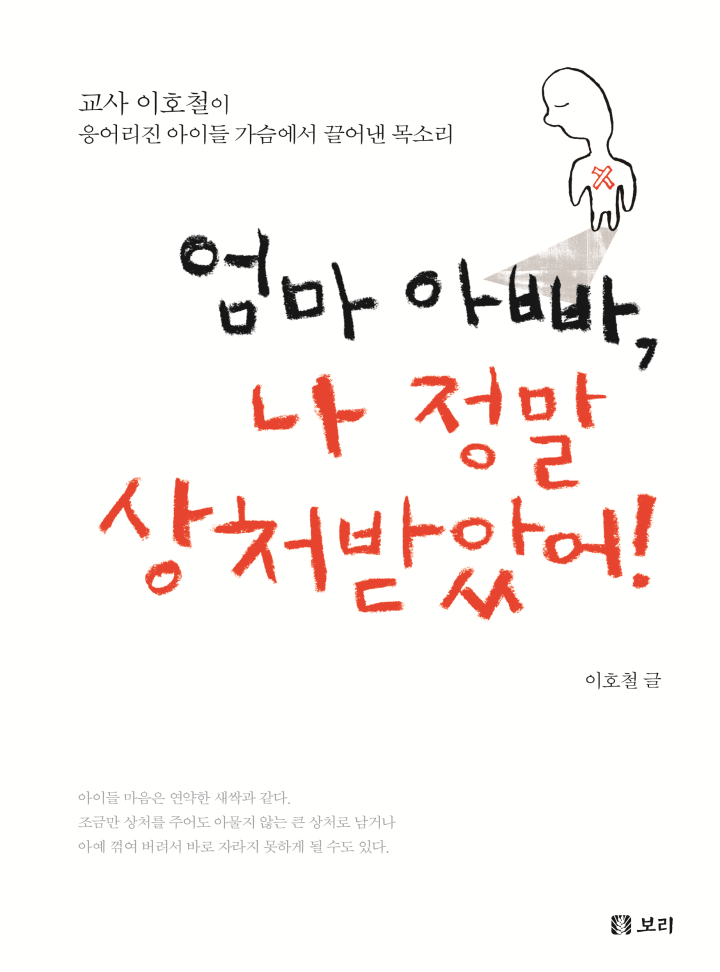 교사 이호철이
응어리진 아이들 가슴에서 끌어낸 목소리
엄마 아빠,
나 정말
상처받았어!
이호철 글
아이들 마음은 연약한 새싹과 같다.
조금만 상처를 주어도 아물지 않는 큰 상처로 남거나
아예 꺾여 버려서 바로 자라지 못하게 될 수도 있다.
보리